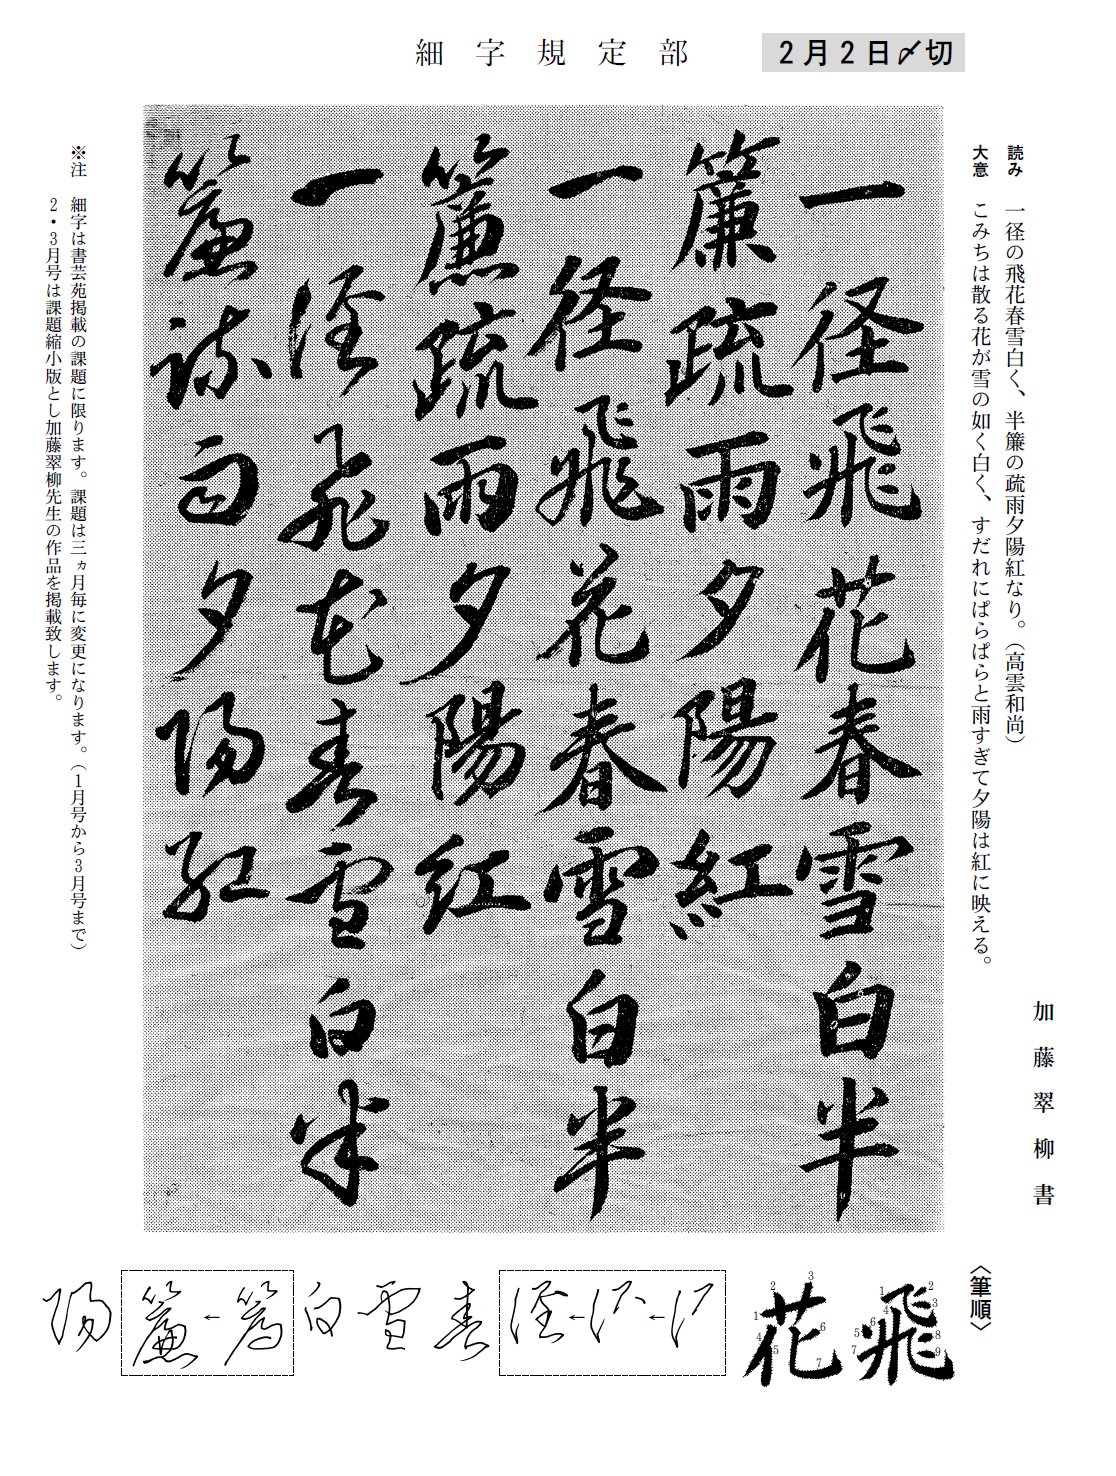 細字規定部
2月2日〆切
加藤翠柳書
読み 一径の飛花春雪白く、半簾の疏雨夕陽紅なり。（高雲和尚）
大意 こみちは散る花が雪の如く白く、すだれにぱらぱらと雨すぎて夕陽は紅に映える。
一径飛花春雪白半
簾疏雨夕陽紅
一径飛花春雪白半
簾疏雨夕陽紅
一径飛花春雪白半
簾疏雨夕陽紅
※注 細字は書芸苑掲載の課題に限ります。課題は三ヵ月毎に変更になります。（1月号から3月号まで）
2・3月号は課題縮小版とし加藤翠柳先生の作品を掲載致します。
〈筆順〉
飛 1 2 3 4 5 6 7 8 9
花 1 2 3 4 5 6 7
径
春
雪
白
簾
陽